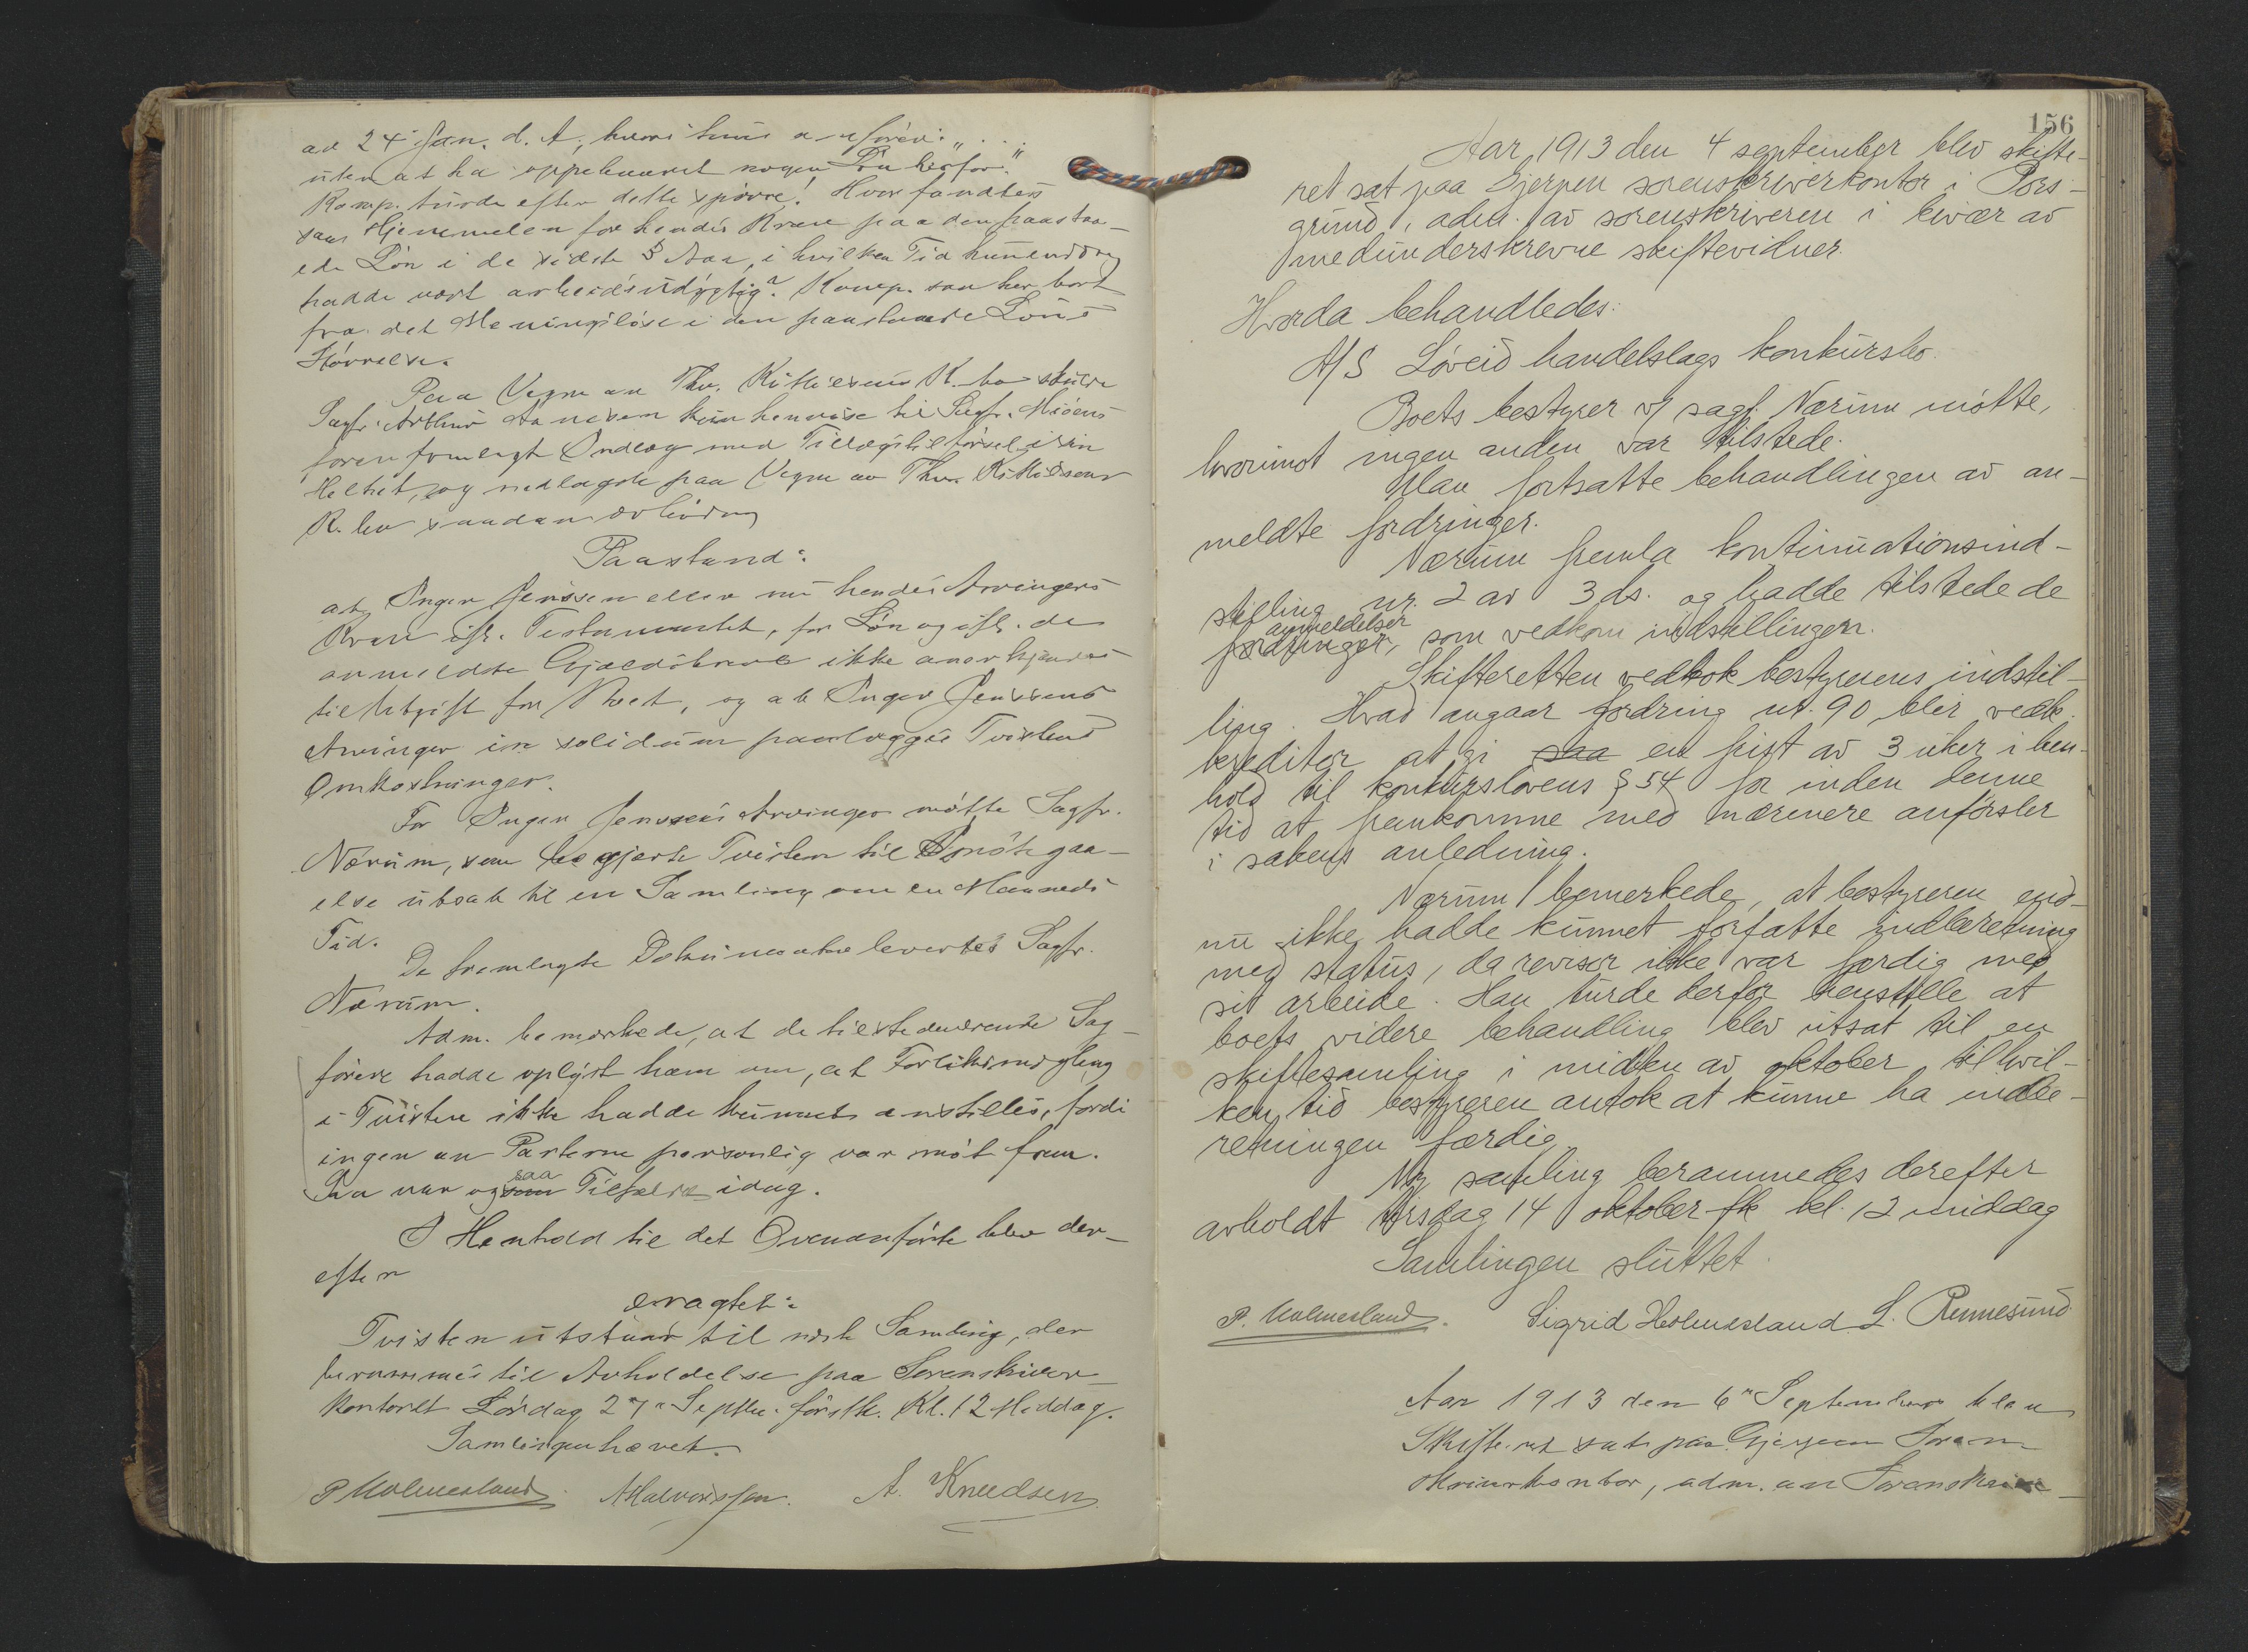 av 24 Jan. d. A., hvori hun anförer: „ . . .
uten at ha oppebaaret nogen Lön herfor."
Komp. turde efter dette spörre! Hvor fandtes
saa Hjemmelen for hendes Krav paa den paastaa-
ede Lön i de sidste 5 Aar, i hvilken Tid hun endog
hadde vært arbeidsudygtig? Komp. saa her bort
fra det Meningslöse i den paastaaede Löns
Störrelse.
Paa Vegne av Thv. Kittilsens K. bo skulde
Sagf. Arthur Aanesen kun henvise til Sagf. Mjöens
foran fremlagt Indlæg med Tillægstilförsel i sin
Helhet, og nedlagde paa Vegne av Thv. Kittilsens
K. bo saadan avsluttende
Paastand:
at Inger Jenssen eller nu hendes Arvingers
Krav ifl. Testamentet, for Lön og ifl. de
anmeldte Gjældsbrev ikke anerkjendes
til Utgift for Boet, og at Inger Jenssens
Arvinger in solidum paalægges Tvistens
Omkostninger.
For Inger Jenssens Arvinger mötte Sagfr.
Nærum, som begjærte Tvisten til Imötegaa-
else utsat til en Samling om en Maaneds
Tid.
De fremlagte Dokumenter levertes Sagfr.
Nærum.
Adm. bemerkede, at de tilstedeværende Sag-
förere hadde oplyst ham om, at Forliksmægling
i Tvisten ikke hadde kunnet anstilles, fordi
ingen av Parterne personlig var möt frem.
Saa var og saa Tilfælde idag.
I Henhold til det Ovenanförte blev der-
efter
eragtet:
Tvisten utstaar til næste Samling, der
berammes til Avholdelse paa Sorenskriver-
kontoret Lördag 27de Septbr. förstk. Kl. 12 Middag.
Samlingen hævet.
P Holmesland. AHalvorsen. A. Knudsen
156
Aar 1913 den 4 september blev skifte-
ret sat paa Gjerpen sorenskriverkontor i Pors-
grund, adm. av sorenskriveren i nævær av
medunderskrevne skiftevidner.
Hvorda behandledes:
A/S Løveid handelslags konkursbo.
Boets bestyrer v/ sagf. Nærum møtte,
hvorimot ingen anden var tilstede.
Man fortsatte behandlingen av an-
meldte fordringer.
Nærum fremla kontinuationsind-
stilling nr. 2 av 3 ds. og hadde tilstede de
anmeldelser
fordringer, som vedkom indstillingen.
Skifteretten vedtok bestyrerens indstil-
ling. Hvad angaar fordring nr. 90 blir vedk.
kreditor at gi saa en frist av 3 uker i hen-
hold til konkurslovens § 54 for inden denne
tid at fremkomme med nærmere anførsler
i sakens anledning.
Nærum bemerkede, at bestyreren end-
nu ikke hadde kunnet forfatte indberetning
med status, da revisor ikke var færdig med
sit arbeide. Han turde derfor henstille at
boets videre behandling blev utsat til en
skiftesamling i midten av oktober til hvil-
ken tid bestyreren antok at kunne ha indbe-
retningen færdig.
Ny samling berammedes derefter
avholdt tirsdag 14 oktober fk kl. 12 middag
Samlingen sluttet.
P. Holmesland. Sigrid Holmesland L. Rennesund
Aar 1913 den 6te September blev
Skifteret sat paa Gjerpen Soren-
skriverkontor, adm. av Sorenskrive-